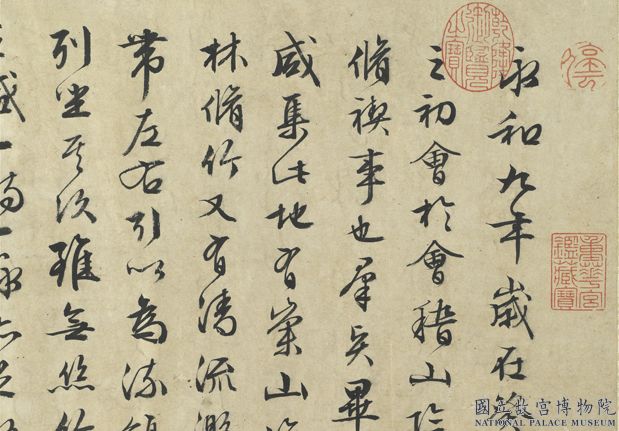 永和九年歲在
之初會於會稽山陰
脩禊事也羣賢畢
咸集此地有崇山
林脩竹又有清流激
帶左右引以為流觴
列坐其次雖無絲竹
盛一觴一詠亦足
乾隆御覽之寶
重華宮鑑藏寶
國立故宮博物院
NATIONAL PALACE MUSEUM